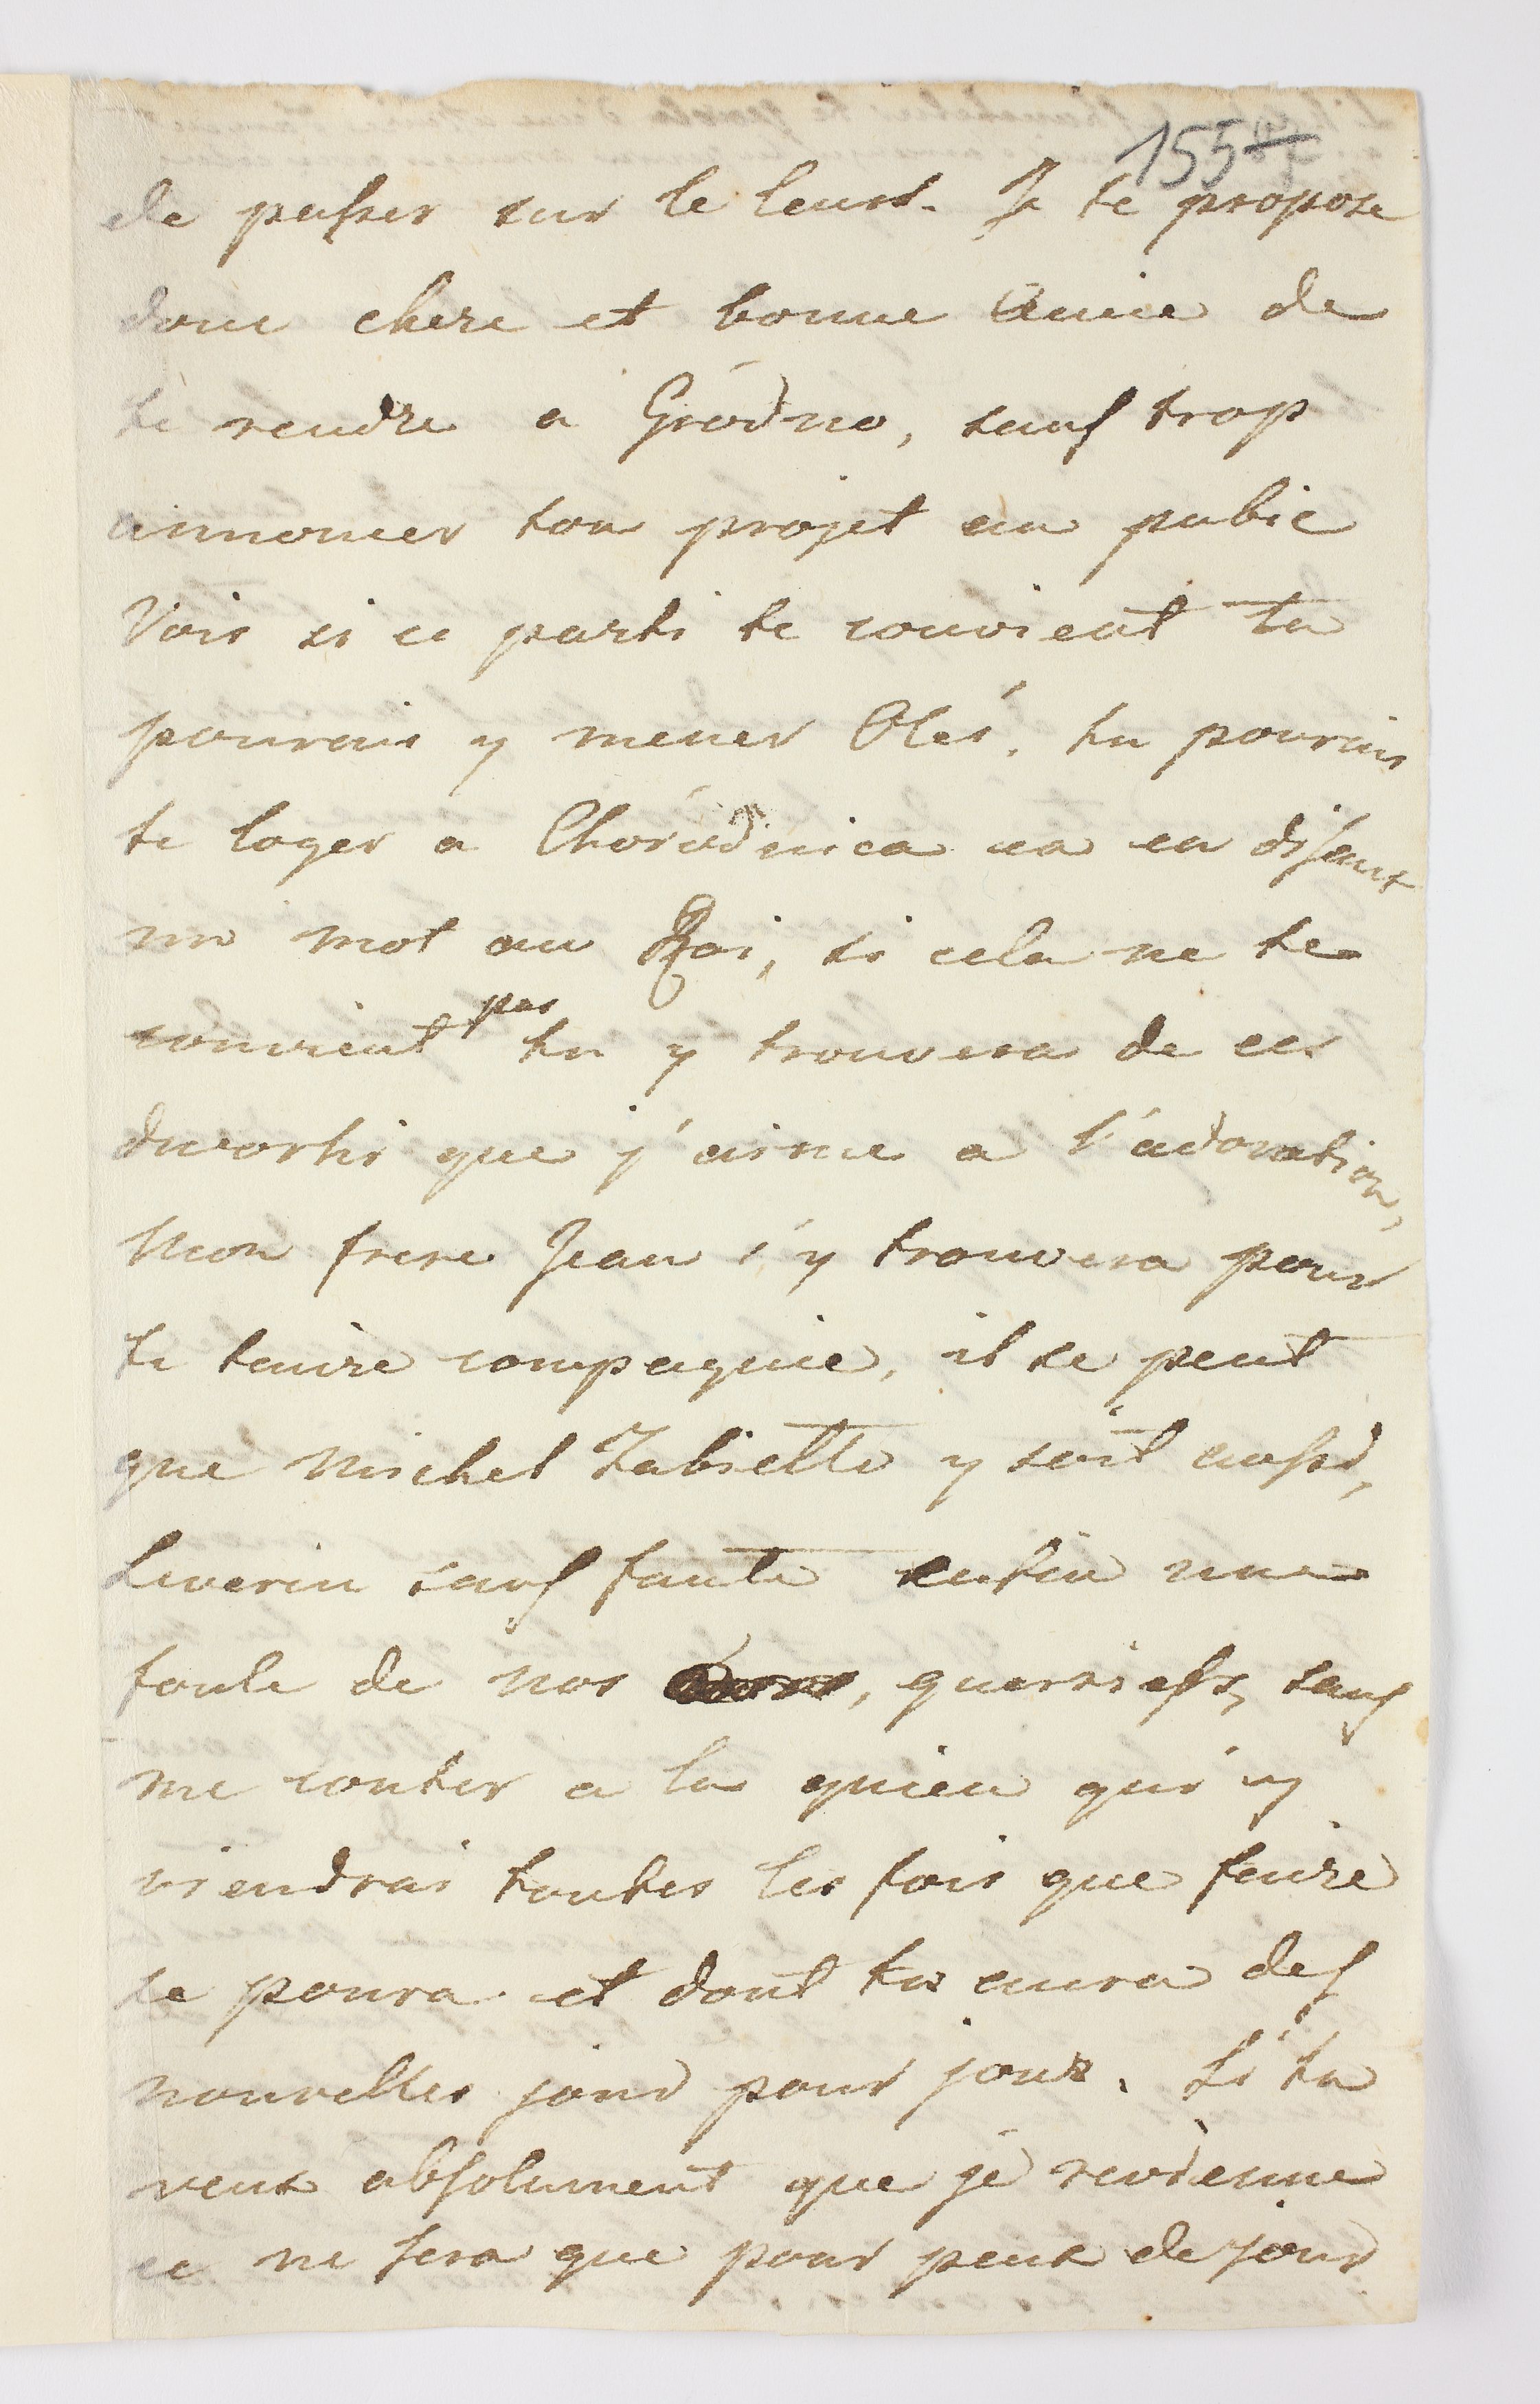 155
de passer sur le leurs. Je te propose
donc chere et bonne amie de
te rendre a Grodno, sans trop
annoncer ton projet au pubic
Vois si ce parti te convient tu
pourais y mener Olés, tu pourais
te loger a Horodnica en disant
un mot au Roi, si cela ne te
convient pas tu y trouvera de ces
dworki que j'aime a l'adoration,
Mon frere Jean s'y trouvera pour
te tenire compagnie, il se peut
que Michel Zabiello y soit aussi,
Severin sans faute enfin une
foule de nos, guerriers, sans
me conter a la qui y
viendrai toutes les fois que faire
se poura et dont tu aura des
nouvelles jour pour jour. Si tu
veux absolument que je revienne
ce ne sera que pour peux de jour